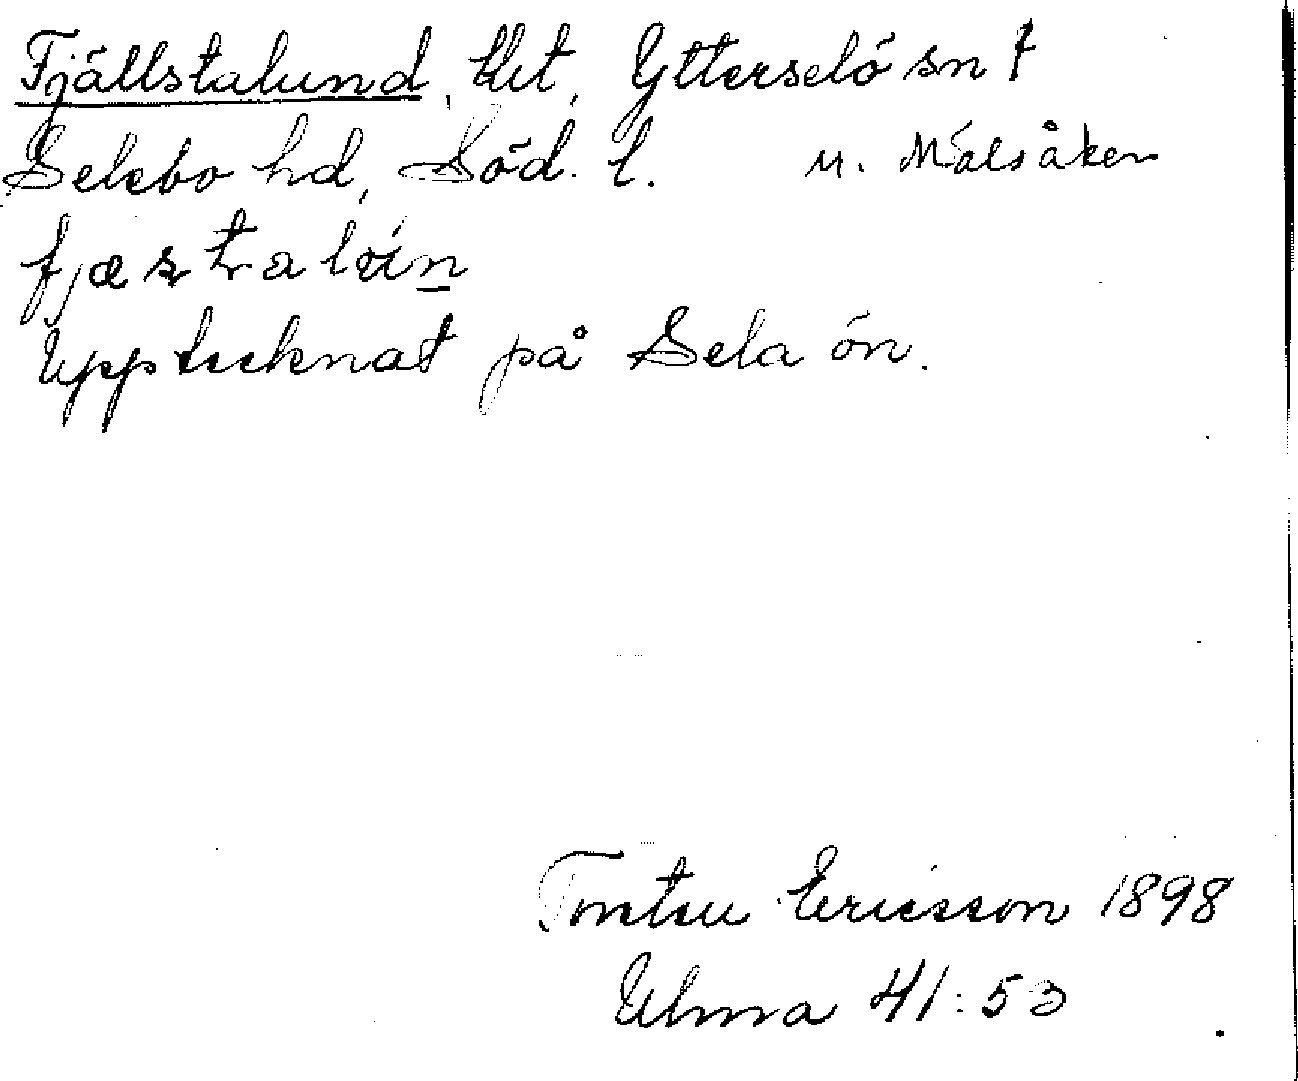 Fjällstalund, tlt, Ytterselö sn †
Selebo hd, Söd. l. u. Mälsåker
fjæstralún
Upptecknat på Sela ön.
Torsten Ericsson 1898
Ulma 41:53